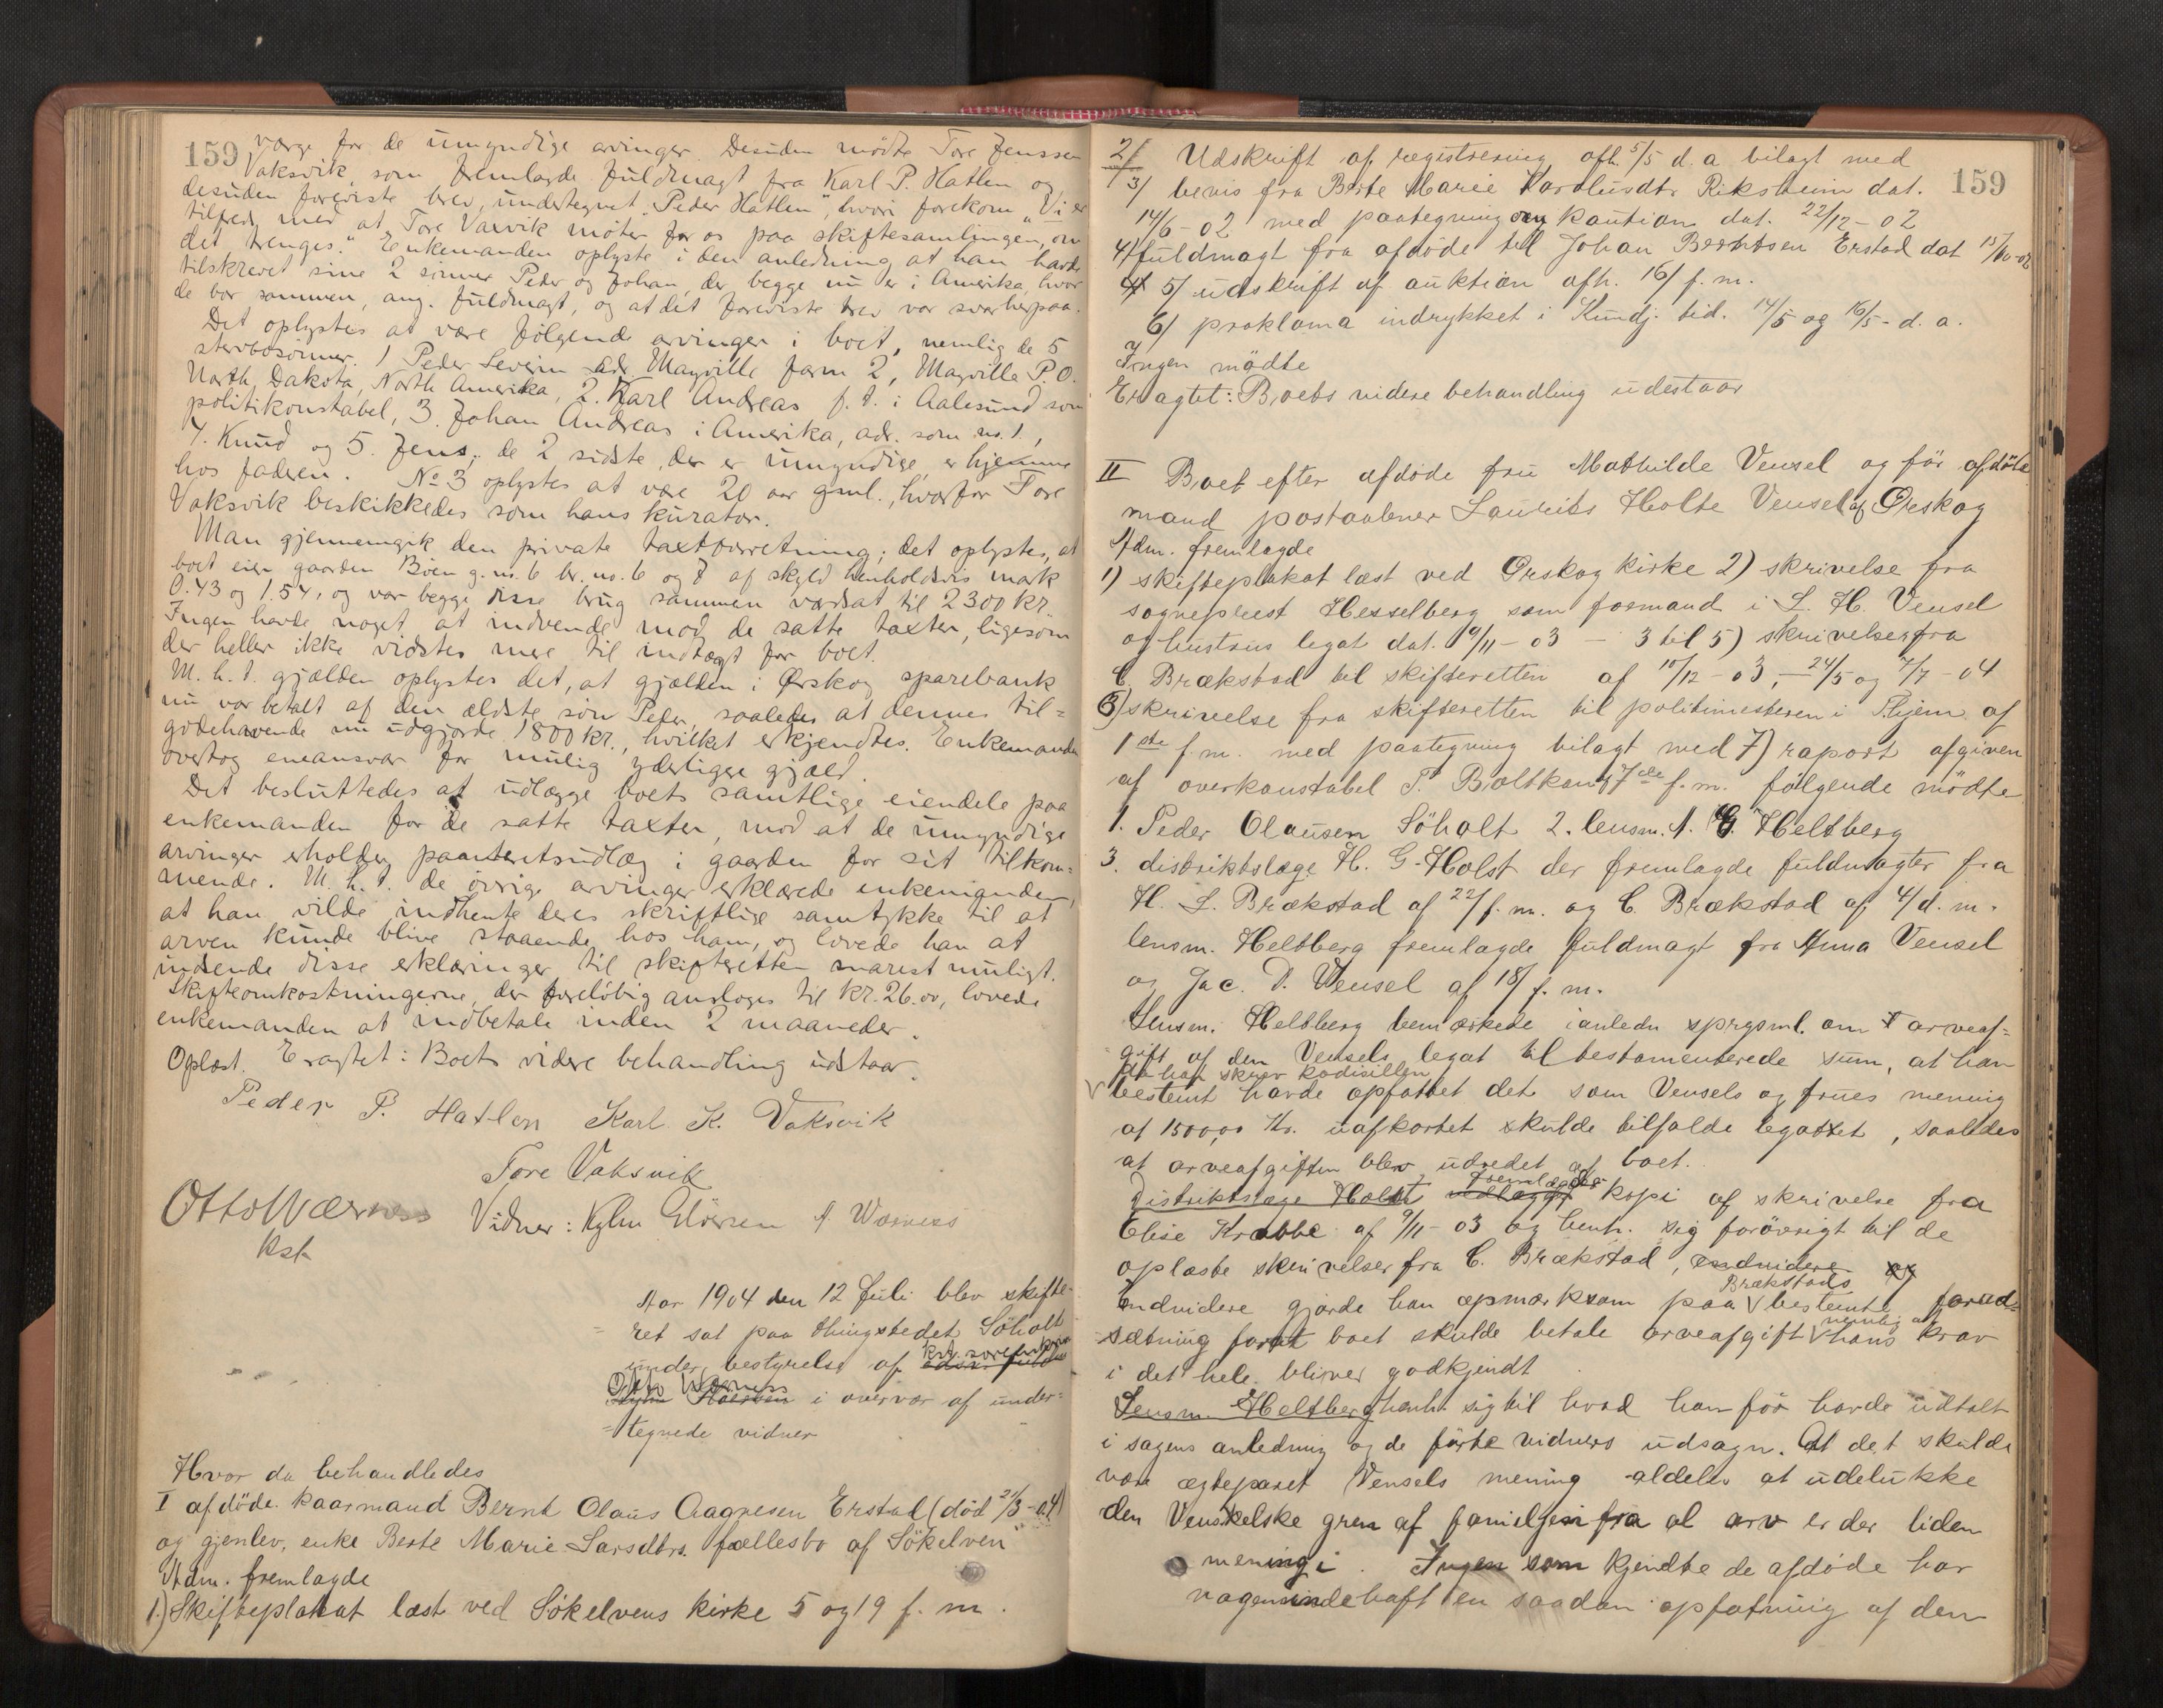 159
værge for de umyndige arvinger. Desuden mødte Tore Jenssen
Vaksvik, som fremlagde fuldmagt fra Karl P. Hatlen og
desuden foreviste brev, undertegnet "Peder Hatlen", hvori forekom "Vi er
tilfreds med at Tore Vaxvik møter for os paa skiftesamlingen, om
det trenges." Enkemanden oplyste i den anledning at han havde
tilskrevet sine 2 sønner Peder og Johan, der begge nu er i Amerika, hvor
de bor sammen, ang. fuldmagt, og at det foreviste brev var svar herpaa.
Det oplystes at være følgende arvinger i boet, nemlig de 5
stervbosønner: 1 Peder Severin adr. Mayville farm 2, Mayville P.O.
North Dakota, North Amerika, 2. Karl Andreas f. t. i Aalesund som
politikonstabel, 3. Johan Andreas i Amerika, adr. som no. 1,
4. Knud og 5. Jens, de 2 sidste, der er umyndige, er hjemme
hos faderen. No 3 oplystes at være 20 aar gml., hvorfor Tore
Vaksvik beskikkedes som hans kurator.
Man gjennemgik den private taxtforretning; det oplystes, at
boet eier gaarden Böen g. no. 6 br. no. 6 og 7 af skyld henholdsvis mark
0.43 og 1.54, og var begge disse brug sammen værdsat til 2300 kr.
Ingen havde noget at indvende mod de satte taxter, ligesom
der heller ikke vidstes mere til indtægt for boet.
M. h. t. gjælden oplystes det, at gjælden i Ørskog sparebank
nu var betalt af den ældste søn Peder, saaledes at dennes til=
godehavende nu udgjorde 1800 kr., hvilket erkjendtes. Enkemanden
overtog eneansvar for mulig yderligere gjæld.
Det besluttedes at udlægge boets samtlige eiendele paa
enkemanden for de satte taxter, mod at de umyndige
arvinger erholder panteretsudlæg i gaarden for sit tilkom=
mende. M. h. t. de øvrige arvinger erklærede enkemanden,
at han vilde indhente deres skriftlige samtykke til at
arven kunde blive staaende hos ham, og lovede han at
indsende disse erklæringer til skifteretten snarest muligt.
Skifteomkostningerne, der foreløbig ansloges til kr. 26.00, lovede
enkemanden at indbetale inden 2 maaneder.
Oplæst. Eragtet: Boets videre behandling udstaar.
Peder P. Hatlen Karl K. Vaksvik
Tore Vaksvik
Otto Wærness Vidner: A Wærness
kst
Aar 1904 den 12 Juli blev skifte-
ret sat paa thingstedet Söholt
under bestyrelse af kst. sorenskr
Otto Wærness i overvær af under=
=tegnede vidner
Hvor da behandledes
I afdöde kaarmand Bernt Olaus Aagnesen Erstad (död 21/3-04)
og gjenlev. enke Berte Marie Larsdtrs. fællesbo af Sökelven
Adm. fremlagde
1.) Skifteplakat læst ved Sökelvens kirke 5 og 19 f. m.
159
2/ Udskrift af registrering afh. 5/5 d. a bilagt med
3/ bevis fra Berte Marie Riksheim dat.
14/6-02 med paategning om kaution dat. 22/12-02
4/ fuldmagt fra afdöde til Johan Berntsen Erstad dat
5/ udskrift af auktion afh. 16/ f. m.
6/ proklama indrykket i Kundj. tid. 14/5 og 16/5 - d. a.
Ingen mødte
Eragtet: Boets videre behandling udestaar
II Boet efter afdöde fru Mathilde Vensel og för afdöde
mand postaabner Laurits Holte Vensel af Ørskog
Adm. fremlagde
1) skifteplakat læst ved Ørskog kirke 2) skrivelse fra
sogneprest Hesselberg som formand i L. H. Vensel
og hustrus legat dat. 9/11-03 - 3 til 5) skrivelser fra
C. Brækstad til skifteretten af 10/12-03, - 24/5 og 7/7-04
6) skrivelse fra skifteretten til politimesteren i Thjem af
1ste f. m. med paategning bilagt med 7) raport afgiven
af overkonstabel P. 7de f. m. følgende mødte
1. Peder Olausen Söholt 2. lensm. A. G. Heltberg
3. distriktslæge H. G. Holst der fremlagde fuldmagter fra
H. L. Brækstad af 22/ f. m. og C. Brækstad af 4/ d. m.
lensm. Heltberg fremlagde fuldmagt fra Anna Vensel
og Jac. D. Vensel af 18/ f. m.
Lensm. Heltberg bemærkede i anledn spørgsml. om arveaf=
gift af den Vensels legat til testamenterede sum, at han
da han skrev kodisillen
bestemt havde opfattet det som Vensels og frues mening
at 15000,00 Kr. uafkortet skulde tilfalde legatet, saaledes
at arveafgiften blev udredet af boet.
Distriktslæge Holst fremlagde kopi af skrivelse fra
Elise Krabbe af 9/11-03 og henh. sig forövrigt til de
oplæste skrivelser fra C. Brækstad, endvidere og
Endvidere gjorde han opmærksom paa Brækstads bestemte forud=
sætning for at boet skulde betale arveafgift nemlig at hans krav
i det hele bliver godkjendt
Lensm. Heltberg henh. sig til hvad han för havde udtalt
i sagens anledning og de førte vidners udsagn. At det skulde
være ægteparet Vensels mening aldeles at udelukke
den Venselske gren af familjen fra al arv er der liden
mening i. Ingen som kjendte de afdöde har
nogensinde haft en saadan opfatning af dem